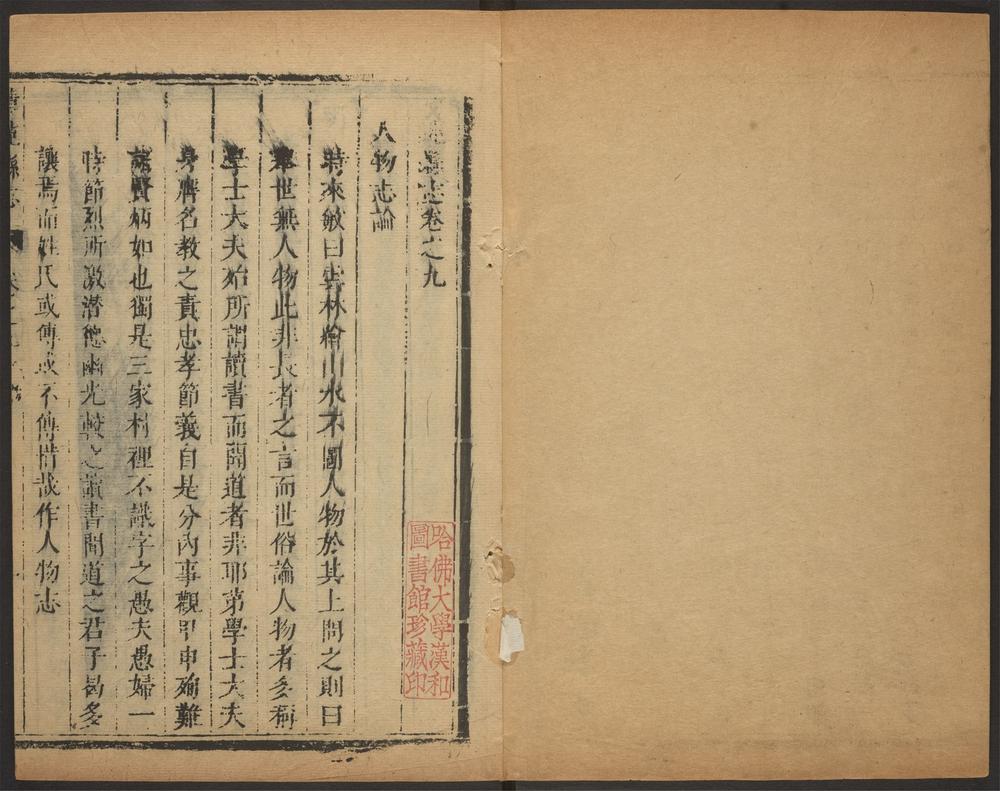 縣志卷之九
人物志論
時來敏曰雲林繪山水不圖人物於其上問之則曰
舉世無人物此非長者之言而世俗論人物者多稱
學士大夫殆所謂讀書而聞道者非耶第學士大夫
身膺名教之責忠孝節義自是分內事觀甲申殉難
諸賢炳如也獨是三家村裡不識字之愚夫愚婦一
時節烈所激潛德幽光較之讀書聞道之君子曷多
讓焉而姓氏或傳或不傳惜哉作人物志
縣志
哈佛大學漢和
圖書館珍藏印